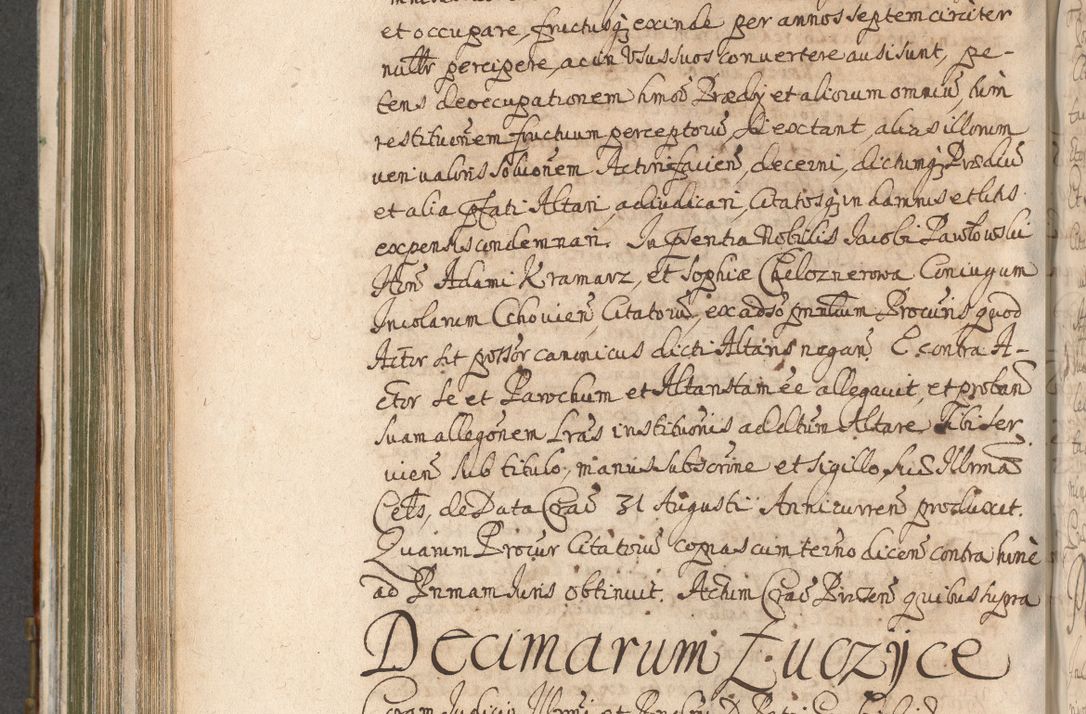 et occupare, fructusq; exinde per annos septem circiter
nullr percipere, ac in Usus suos convertere ausi sunt, pe-
tens deoccupationem hmoi Prædij et aliorum omniu, hinc
restituonem fructuum perceptoru si extant, alias illorum
veri valoris soluonem Actori facien, decerni, dictumq; Prædiu
et alia pfati Altari, adiudicari, Citatosq; in damnis et litis
expensis condemnari. In pntia Nobilis Jacobi Pawłowski
Hon Adami Kramarz, et Sophiæ Cheloznerowa Coniugum
Incolarum Cchovien, Citatoru, ex adso pmntium Procuris quod
Actor sit possor canonicus dicti Altaris negan. E contra A-
ctor se et Parochum et Altaristam ee allegavit, et proban
suam allegonem Lras instituonis ad dltun Altare sibi ser
vien sub titulo, manus subscrine et sigillo, suæ Illrmæ
Celts, de Data Crac 31 Augusti Anni curren produxit.
Quarum Procur Citatoru copias cum termo dicen contra hinc
ad Primam Juris obtinuit. Actum Crac Præsen quibus supra
Decimarum Łuczyce